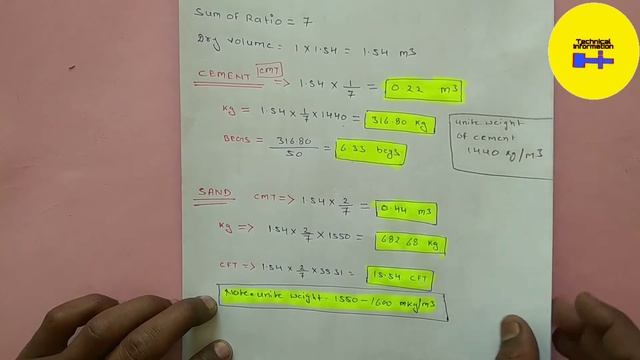 Sum of Ratio = 7
Dry volume = 1 × 1.54 = 1.54 m3
CEMENT CMT => 1.54 × 1/7 = 0.22 m3
Kg = 1.54 × 1/7 × 1440 = 316.80 Kg
Begs = 316.80/50 = 6.33 begs
unite weight
Of cement
1440 Kg/m3
SAND CMT => 1.54 × 2/7 = 0.44 m3
Kg => 1.54 × 2/7 × 1550 = 682.68 Kg
CFT => 1.54 × 2/7 × 35.31 = 15.54 CFT
Note = unite weight - 1550 - 1600 mkg/m3
Technical
Information